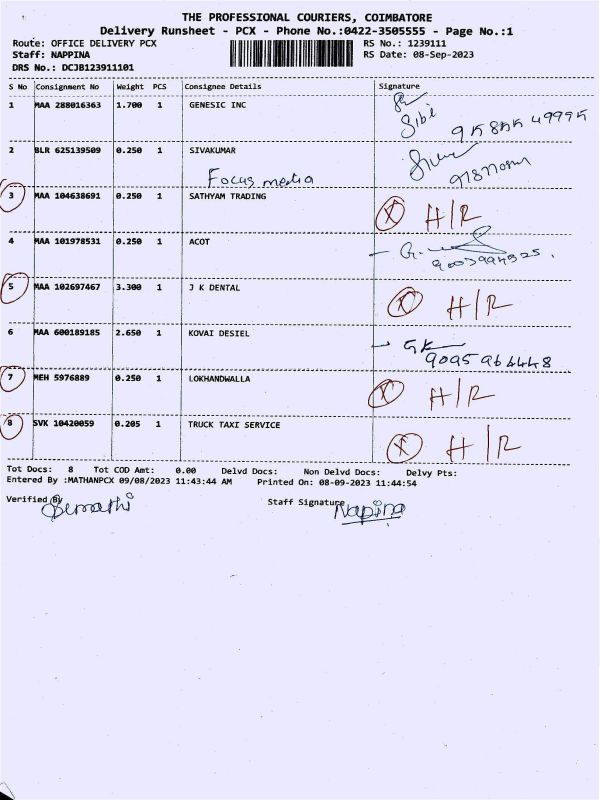 THE PROFESSIONAL COURIERS, COIMBATORE
Delivery Runsheet - PCX - Phone No.:0422-3505555 - Page No.:1
Route: OFFICE DELIVERY PCX RS No.: 1239111
Staff: NAPPINA RS Date: 08-Sep-2023
DRS No.: DCJB123911101
S No Consignment No Weight PCS Consignee Details Signature
1 MAA 288016363 1.700 1 GENESIC INC
Sibi
2 BLR 625139509 0.250 1 SIVAKUMAR
Focus media
3 MAA 104638691 0.250 1 SATHYAM TRADING X H/R
4 MAA 101978531 0.250 1 ACOT
5 MAA 102697467 3.300 1 J K DENTAL X H/R
6 MAA 600189185 2.650 1 KOVAI DESIEL GK
9095964448
7 MEH 5976889 0.250 1 LOKHANDWALLA X H/R
8 SVK 10420059 0.205 1 TRUCK TAXI SERVICE X H/R
Tot Docs: 8 Tot COD Amt: 0.00 Delvd Docs: Non Delvd Docs: Delvy Pts:
Entered By :MATHANPCX 09/08/2023 11:43:44 AM Printed On: 08-09-2023 11:44:54
Verified By Staff Signature Napina